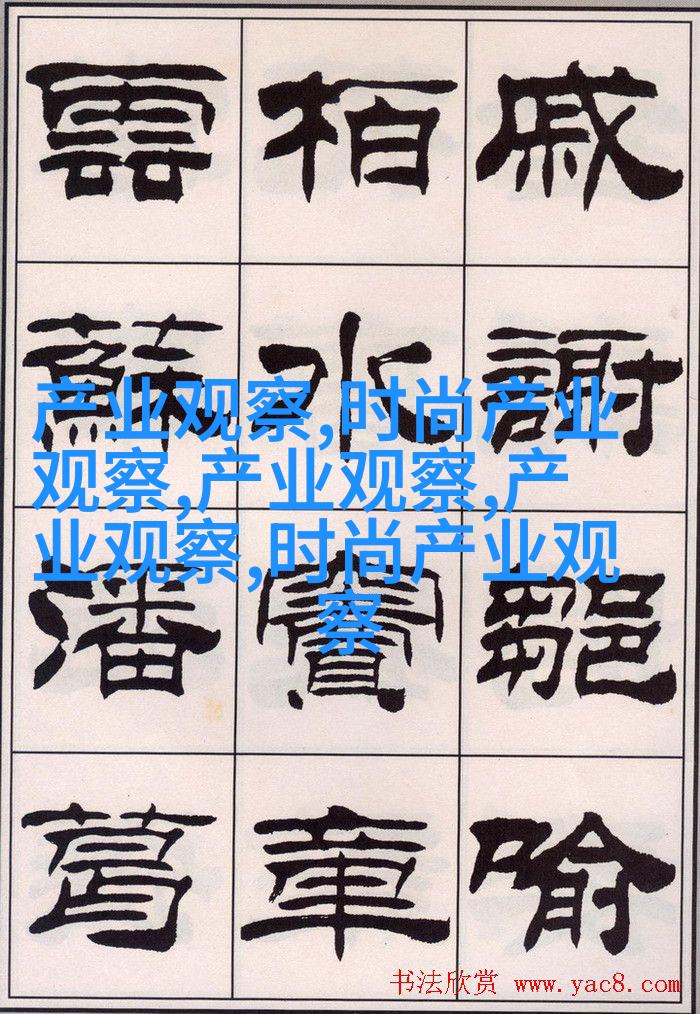 戚謝鄒喻
柏水竇章
雲蘇潘葛
产业观察,时尚产业
观察,产业观察,产
业观察,时尚产业观
察
书法欣赏 www.yac8.com